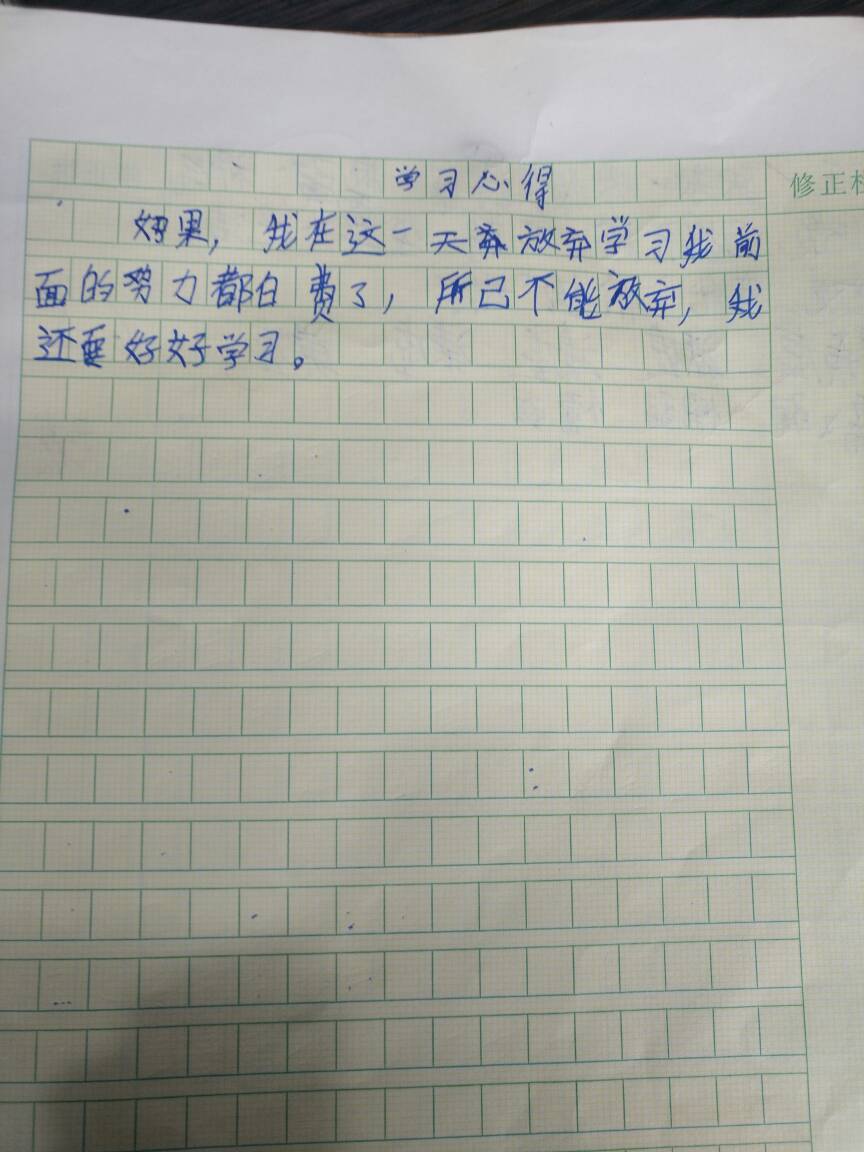 学习心得
修正
如果，我在这一天弃放弃学习我前
面的努力都白费了，所已不能放弃，我
还要好好学习。